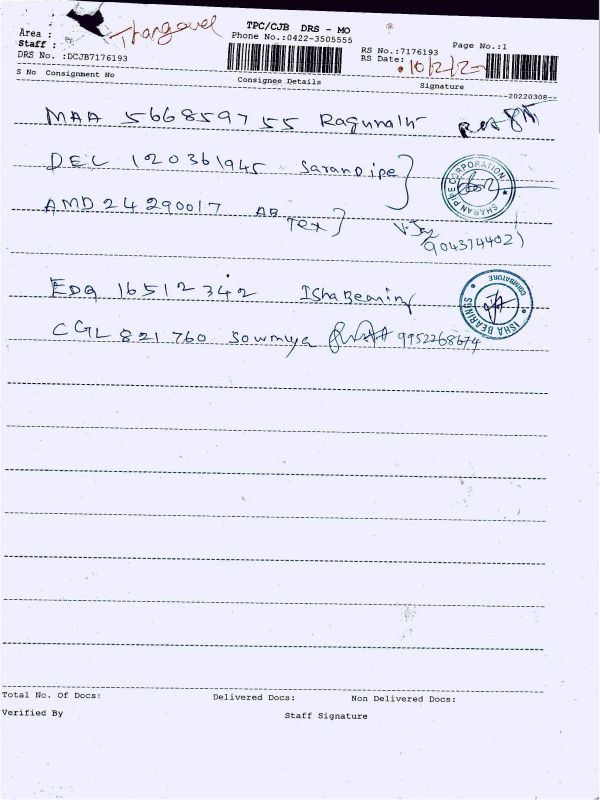 TPC/CJB DRS - MO
Area :
Thangavel
Phone No.:0422-3505555
Staff :
RS No.:7176193
Page No.:1
DRS No. :DCJB7176193
RS Date:
10/2/22
S No Consignment No
Consignee Details
Signature
20220308--
MAA 566859755 Ragunath
DEC 120361945 Saran Pipe
SHARAN PIPE CORPORATION
AMD 24290017 AB Tex
9043744021
EDQ 16512342 Isha Bearing
ISHA BEARING
COIMBATORE
CGL 821760 Sowmya 9952268674
Total No. Of Docs:
Delivered Docs:
Non Delivered Docs:
Verified By
Staff Signature